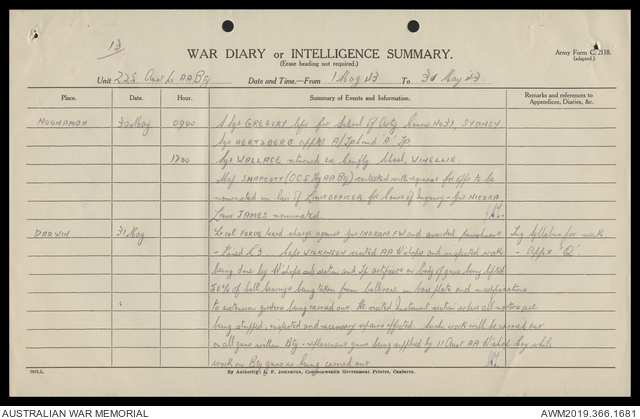 13
WAR DIARY or INTELLIGENCE SUMMARY.
(Erase heading not required.)
Army Form C. 2118.
(adapted.)
Unit 225 Aust Lt AA Bty Date and Time—From 1 May 43 To 31 May 43.
Place. Date. Hour. Summary of Events and Information. Remarks and references to
Appendices, Diaries, &c.
NOONAMAH 30 May 0900 A/Sgt GREGORY left for School of Arty Course No 31, SYDNEY
Sgt HERTZBERG apptd A/Tp Comd 'A' Tp
1200 Sgt WALLACE returned ex School, WINNELLIE.
Maj SHAPCOTT (OC Hy AA Bty) contacted with request for offr to be
nominated in lieu of OFFICER for Court of Inquiry - Gnr
Lieut JAMES nominated.
DARWIN 31 May Lt Col FORDE heard charge against Gnr INGRAM F W and awarded punishment Trg Syllabus for week
- fined £3. Capt WILKINSON visited AA W'shops and inspected work - Appx 'Q'.
being done by W'shops sub section and Tp artificers on body of guns being lifted
50% of ball bearings being taken from ballrace in base plate and modifications
to extension girders being carried out. He visited Instrument section where all motors are
being stripped, inspected and necessary repairs effected. Such work will be carried out
on all guns within Bty - replacement guns being supplied by 11 Aust AA W'shop Coy while
work on Bty guns is being carried out.
By Authority: L. F. JOHNSTON, Commonwealth Government Printer, Canberra.
AUSTRALIAN WAR MEMORIAL
AWM2019.366.1681